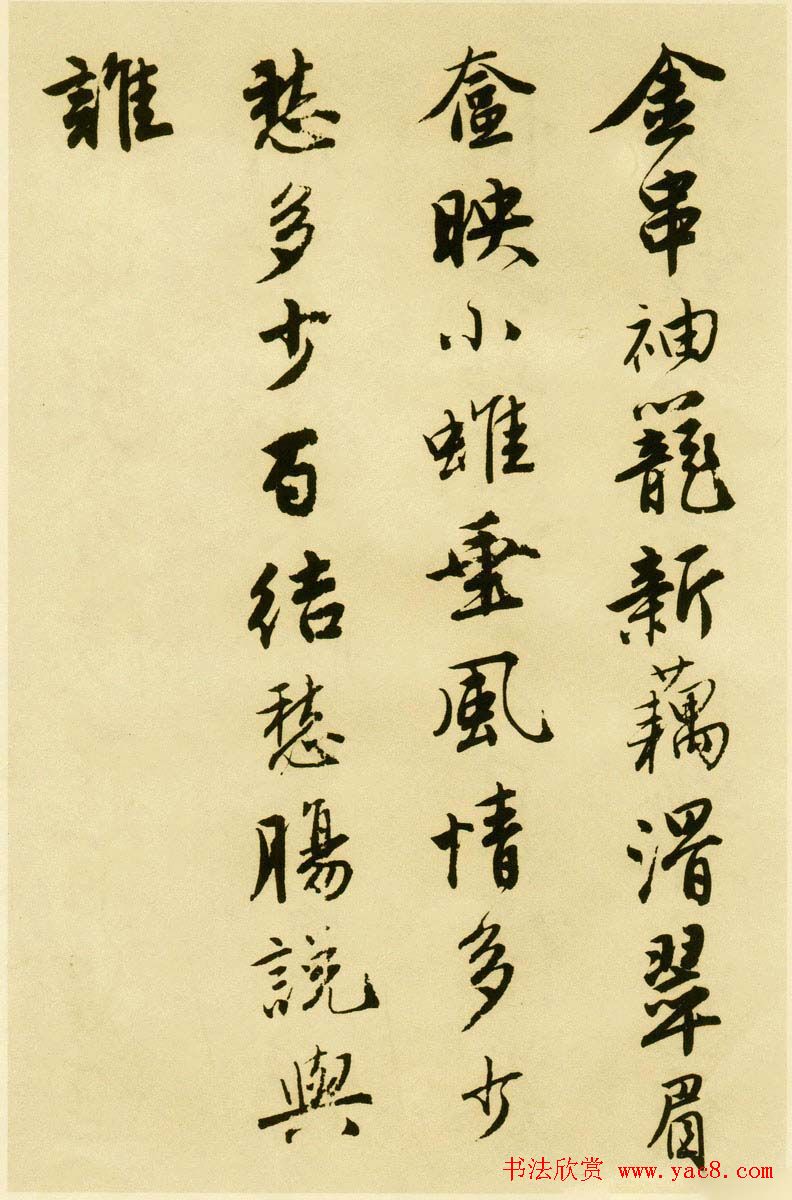 金串袖籠新藕滑翠眉
奩映小蜼垂風情多少
愁多少百結愁腸說與
誰
书法欣赏 www.yac8.com